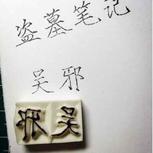 盗墓笔记
吴邪
邪吴